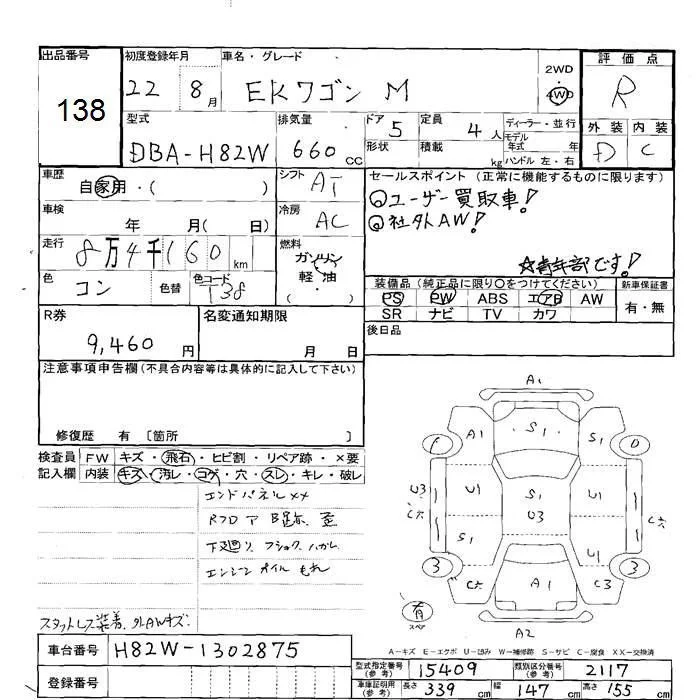 出品番号 138
初度登録年月 22 8月
車名・グレード EKワゴン M
2WD・4WD
評価点 R
型式 DBA-H82W
排気量 660 cc
ドア 5
形状
定員 4人
積載 kg
ディーラー・並行
モデル年式 年
ハンドル 左・右
外装 D
内装 C
車歴 自家用・( )
シフト AT
セールスポイント (正常に機能するものに限ります)
ユーザー買取車!
社外AW!
☆青年部です!
車検 年 月( 日)
冷房 AC
走行 8万4千160 km
燃料 ガソリン
軽・油
色 コン
色替
色コード T38
装備品(純正品に限り○をつけてください)
新車保証書
PS PW ABS エアB AW
有・無
SR ナビ TV カワ
R券 9,460円
名変通知期限
月 日
後日品
注意事項申告欄(不具合内容等は具体的に記入して下さい)
修復歴 有 〔箇所 〕
検査員 FW キズ・飛石・ヒビ割・リペア跡・×要
記入欄 内装 キズ・汚レ・コゲ・穴・スレ・キレ・破レ
エンドパネル××
下廻り
エンジンオイルもれ
スタットレス装着、外AWキズ.
A1
A1 S1 S1
F D
U3 U1 S1 U1
U3
S1 U1
3 3
A1 C3
有
スペア
A2
A−キズ E−エクボ U−凹み W−補修跡 S−サビ C−腐食 XX−交換済
車台番号 H82W-1302875
登録番号
型式指定番号(参考) 15409
類別区分番号(参考) 2117
車庫証明用(参考) 長さ 339cm 幅 147cm 高さ 155cm